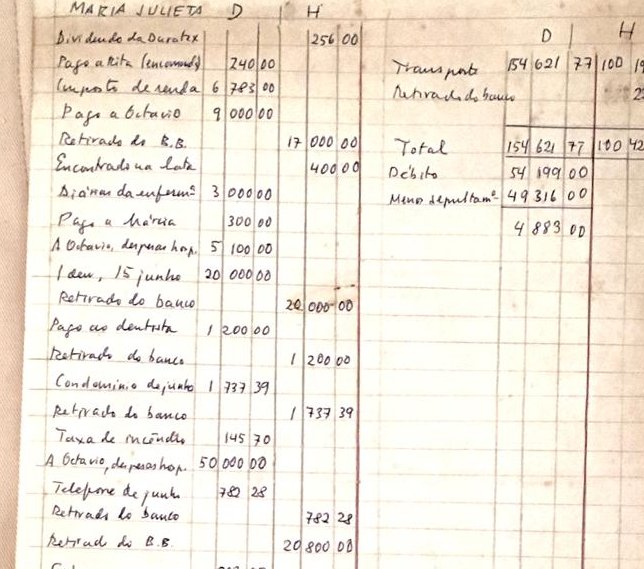 MARIA JULIETA D H
Dividendo da Duratex 256 00
Pago a Rita (encomenda) 240 00
Imposto de renda 6 783 00
Pago a Octavio 9 000 00
Retirado do B.B. 17 000 00
Encontrado na lata 400 00
Diárias da enferma 3 000 00
Pago a Márcia 300 00
A Octavio, despesas hosp. 5 100 00
Idem, 15 junho 20 000 00
Retirado do banco 20 000 00
Pago ao dentista 1 200 00
Retirado do banco 1 200 00
Condominio de junho 1 737 39
Retirado do banco 1 737 39
Taxa de incêndio 145 70
A Octavio, despesas hosp. 50 000 00
Telefone de junho 782 28
Retirado do banco 782 28
Retirado do B.B. 20 800 00
D H
Transporte 154 621 77 100 19
Retirado do banco 2
Total 154 621 77 100 42
Débito 54 199 00
Menos sepultamo 49 316 00
4 883 00